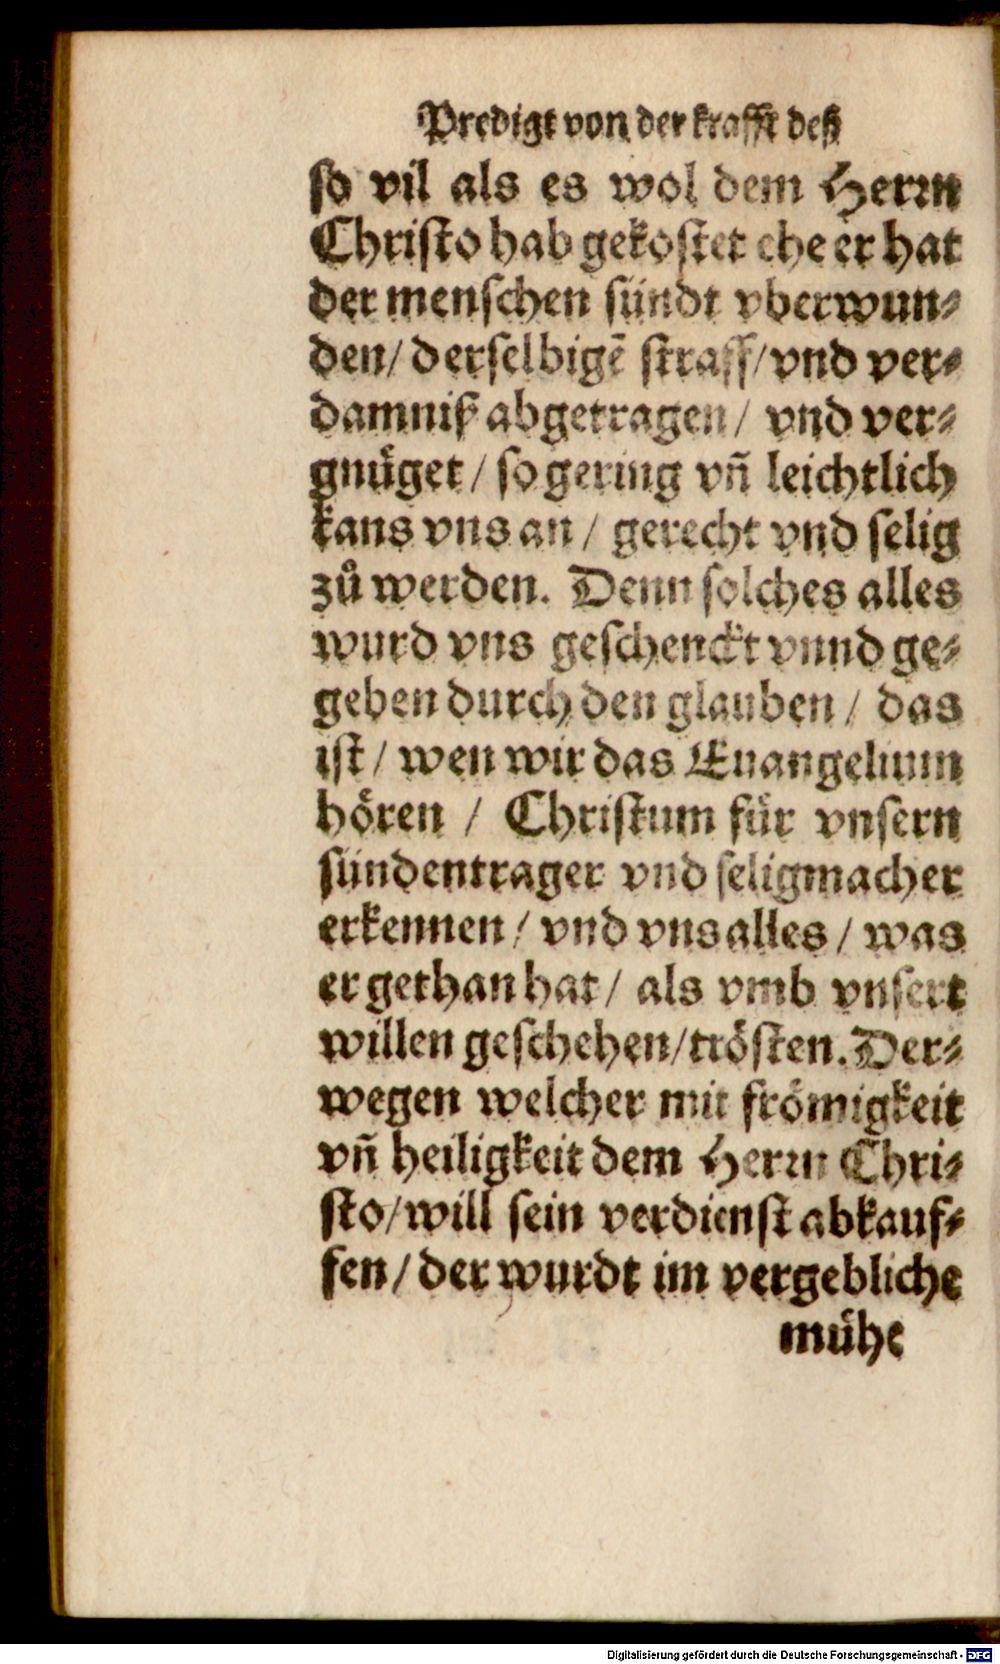 Predigt von der krafft deß
so vil als es wol dem Herrn
Christo hab gekostet ehe er hat
der menschen sündt vberwun⸗
den/ derselbigē straff/ vnd ver⸗
damniß abgetragen/ vnd ver⸗
gnüget/ so gering vñ leichtlich
kans vns an/ gerecht vnd selig
zů werden. Denn solches alles
wurd vns geschenckt vnnd ge⸗
geben durch den glauben/ das
ist/ wen wir das Euangelium
hören/ Christum für vnsern
sündentrager vnd seligmacher
erkennen/ vnd vns alles/ was
er gethan hat/ als vmb vnsert
willen geschehen/ trösten. Der⸗
wegen welcher mit frömigkeit
vñ heiligkeit dem Herrn Chri⸗
sto/ will sein verdienst abkauf⸗
fen/ der wurdt im vergebliche
mühe
Digitalisierung gefördert durch die Deutsche Forschungsgemeinschaft - DFG